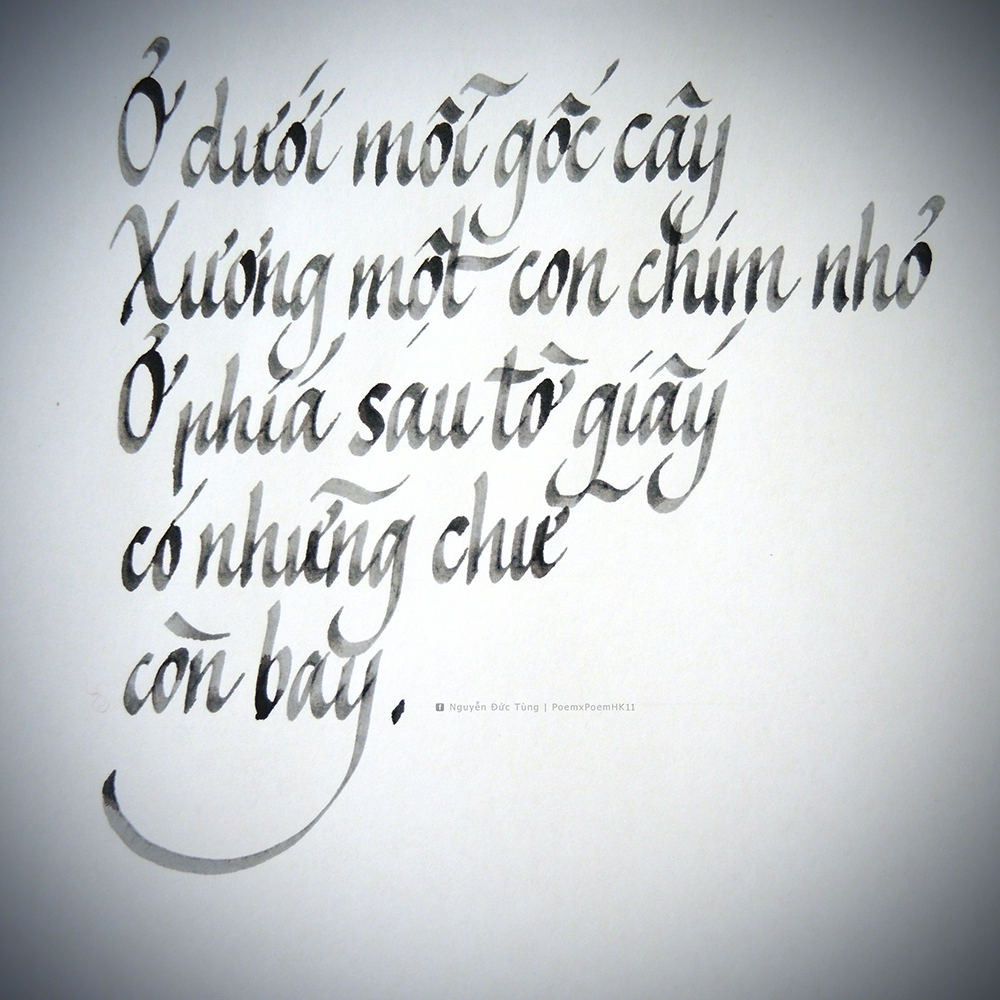 Ở dưới mỗi gốc cây
Xương một con chim nhỏ
Ở phía sau tờ giấy
có những chữ
còn bay.
Nguyễn Đức Tùng | PoemxPoemHK11